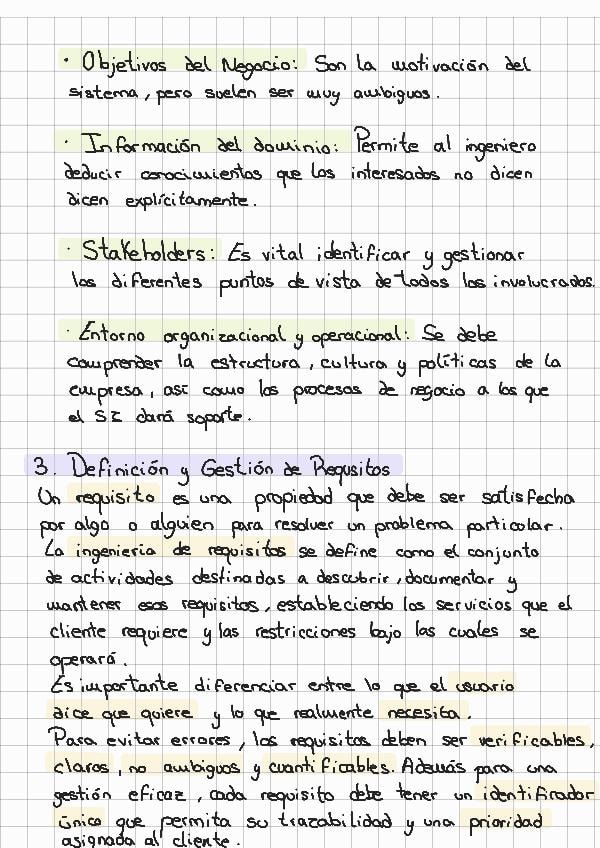 · Objetivos del Negocio: Son la motivación del
sistema, pero suelen ser muy ambiguos.
· Información del dominio: Permite al ingeniero
deducir conocimientos que los interesados no dicen
dicen explícitamente.
· Stakeholders: Es vital identificar y gestionar
los diferentes puntos de vista de todos los involucrados.
· Entorno organizacional y operacional: Se debe
comprender la estructura, cultura y políticas de la
empresa, así como los procesos de negocio a los que
el SI dará soporte.
3. Definición y Gestión de Requsitos
Un requisito es una propiedad que debe ser satisfecha
por algo o alguien para resolver un problema particular.
La ingeniería de requisitos se define como el conjunto
de actividades destinadas a descubrir, documentar y
mantener esos requisitos, estableciendo los servicios que el
cliente requiere y las restricciones bajo las cuales se
operará.
Es importante diferenciar entre lo que el usuario
dice que quiere y lo que realmente necesita.
Para evitar errores, los requisitos deben ser verificables,
claros, no ambiguos y cuantificables. Además para una
gestión eficaz, cada requisito debe tener un identificador
único que permita su trazabilidad y una prioridad
asignada al cliente.